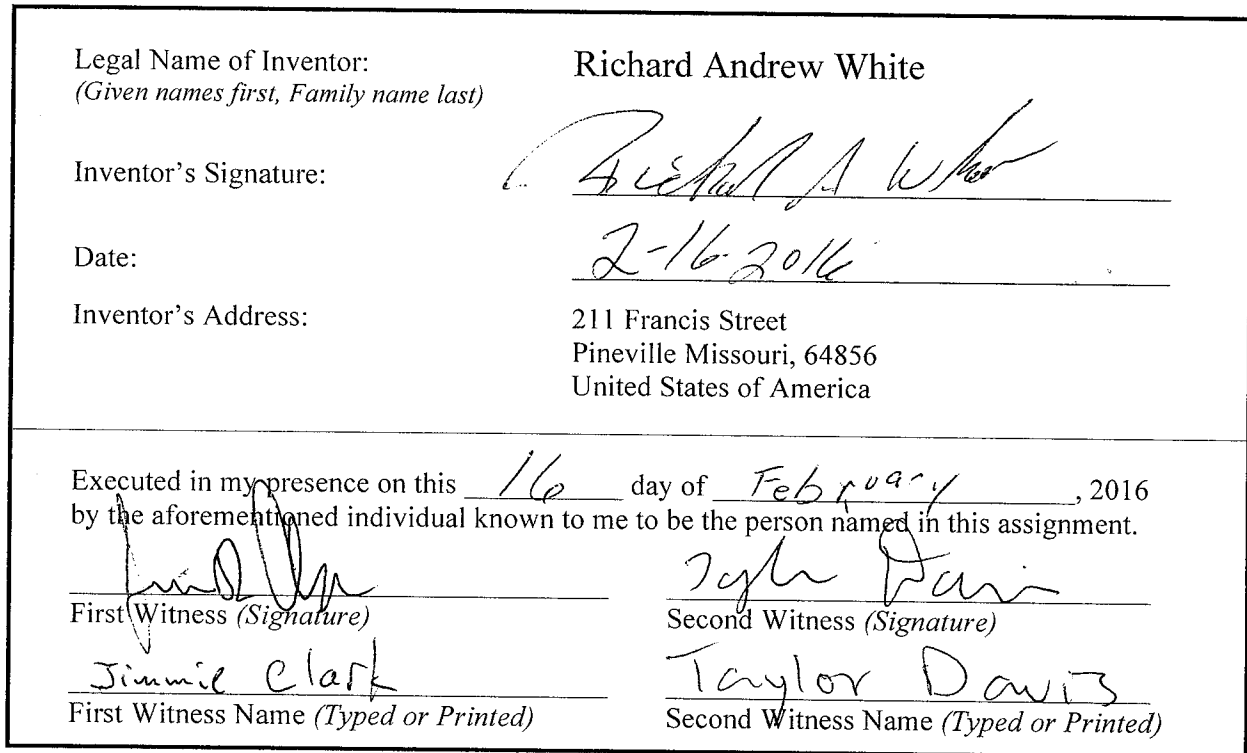 Legal Name of Inventor: Richard Andrew White
(Given names first, Family name last)
Inventor's Signature: Richard A White
Date: 2-16-2016
Inventor's Address: 211 Francis Street
Pineville Missouri, 64856
United States of America
Executed in my presence on this 16 day of February, 2016
by the aforementioned individual known to me to be the person named in this assignment.
First Witness (Signature) Second Witness (Signature)
Jimmie Clark Taylor Davis
First Witness Name (Typed or Printed) Second Witness Name (Typed or Printed)